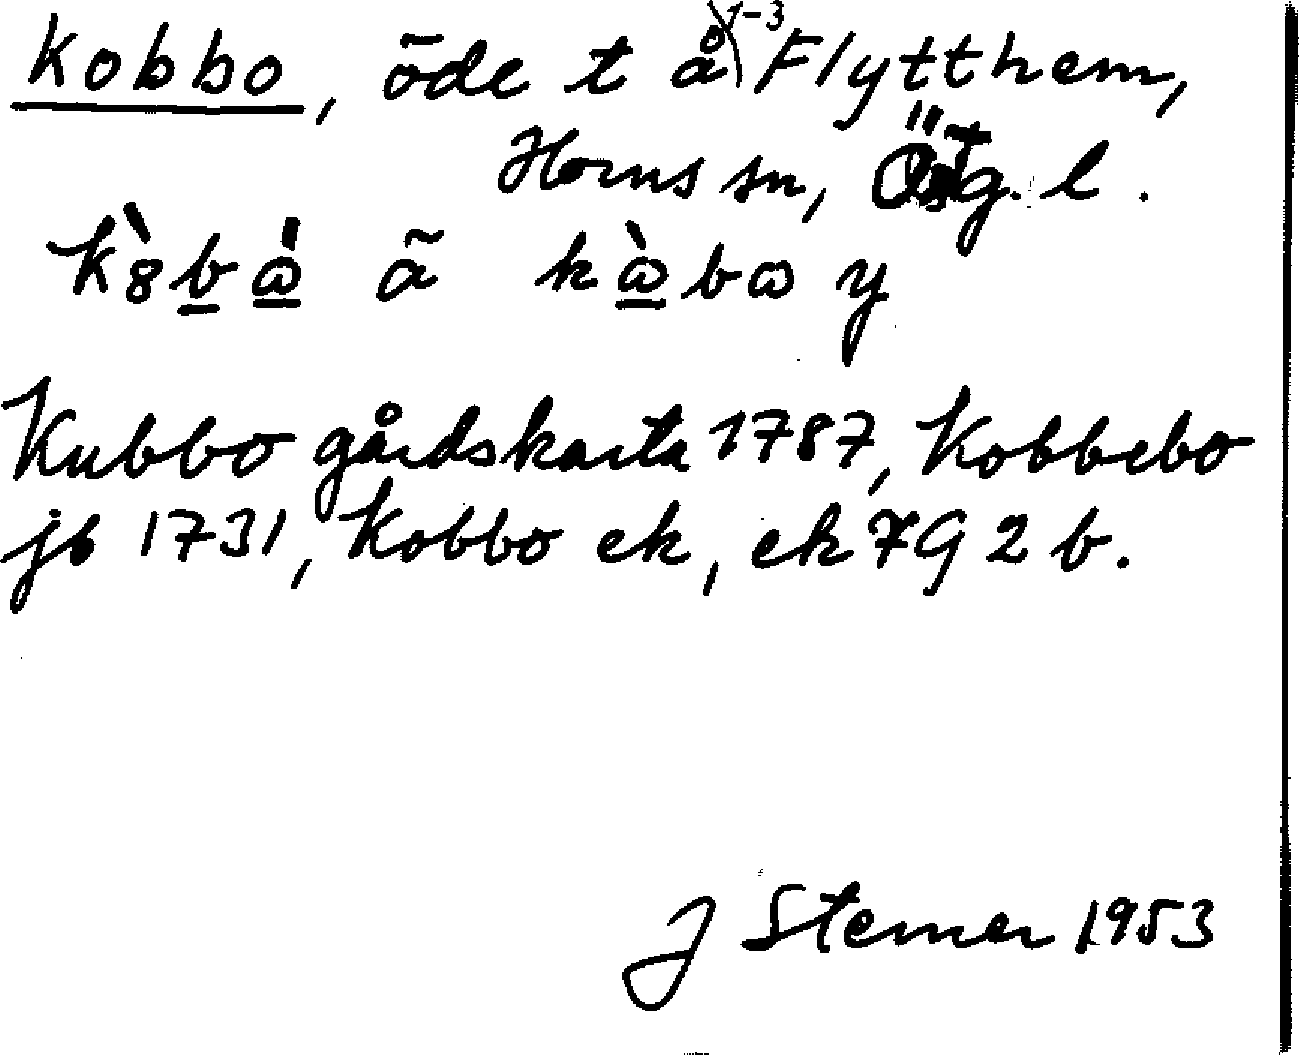 Kobbo, öde t å 1-3 Flytthem,
Horns sn, Östg. l.
ã y
Kubbo gårdskarta 1787, Kobbebo
jb 1731, Kobbo ek, ek 7G 2 b.
J Sterner 1953